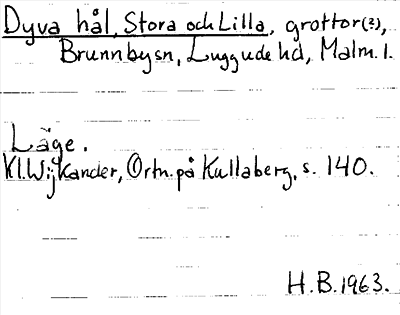 Dyva hål, Stora och Lilla, grottor(?),
Brunnbysn, Luggude hd, Malm. l.
Läge.
Kl. Wijkander, Ortn. på Kullaberg, s. 140.
H.B. 1963.